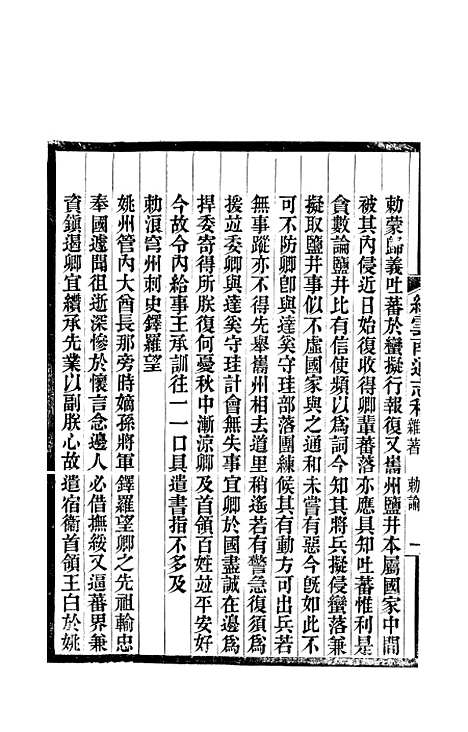 續雲南通志稿 雜著 勅諭 一
勅蒙歸義吐蕃於蠻擬行報復又巂州鹽井本屬國家中間
被其內侵近日始復收得卿輩蕃落亦應具知吐蕃惟利是
貪數論鹽井比有信使頻以爲詞今知其將兵擬侵蠻落兼
擬取鹽井事似不虛國家與之通和未嘗有惡今旣如此不
可不防卿卽與達奚守珪部落團練候其有動方可出兵若
無事蹤亦不得先舉巂州相去道里稍遙若有警急復須爲
援竝委卿與達奚守珪計會無失事宜卿於國盡誠在邊爲
捍委寄得所朕復何憂秋中漸涼卿及首領百姓竝平安好
今故令內給事王承訓往一一口具遣書指不多及
勅浪穹州刺史鐸羅望
姚州管內大酋長那旁時嫡孫將軍鐸羅望卿之先祖輸忠
奉國遽聞徂逝深慘於懷言念邊人必借撫綏又逼蕃界兼
資鎭遏卿宜纘承先業以副朕心故遣宿衛首領王白於姚